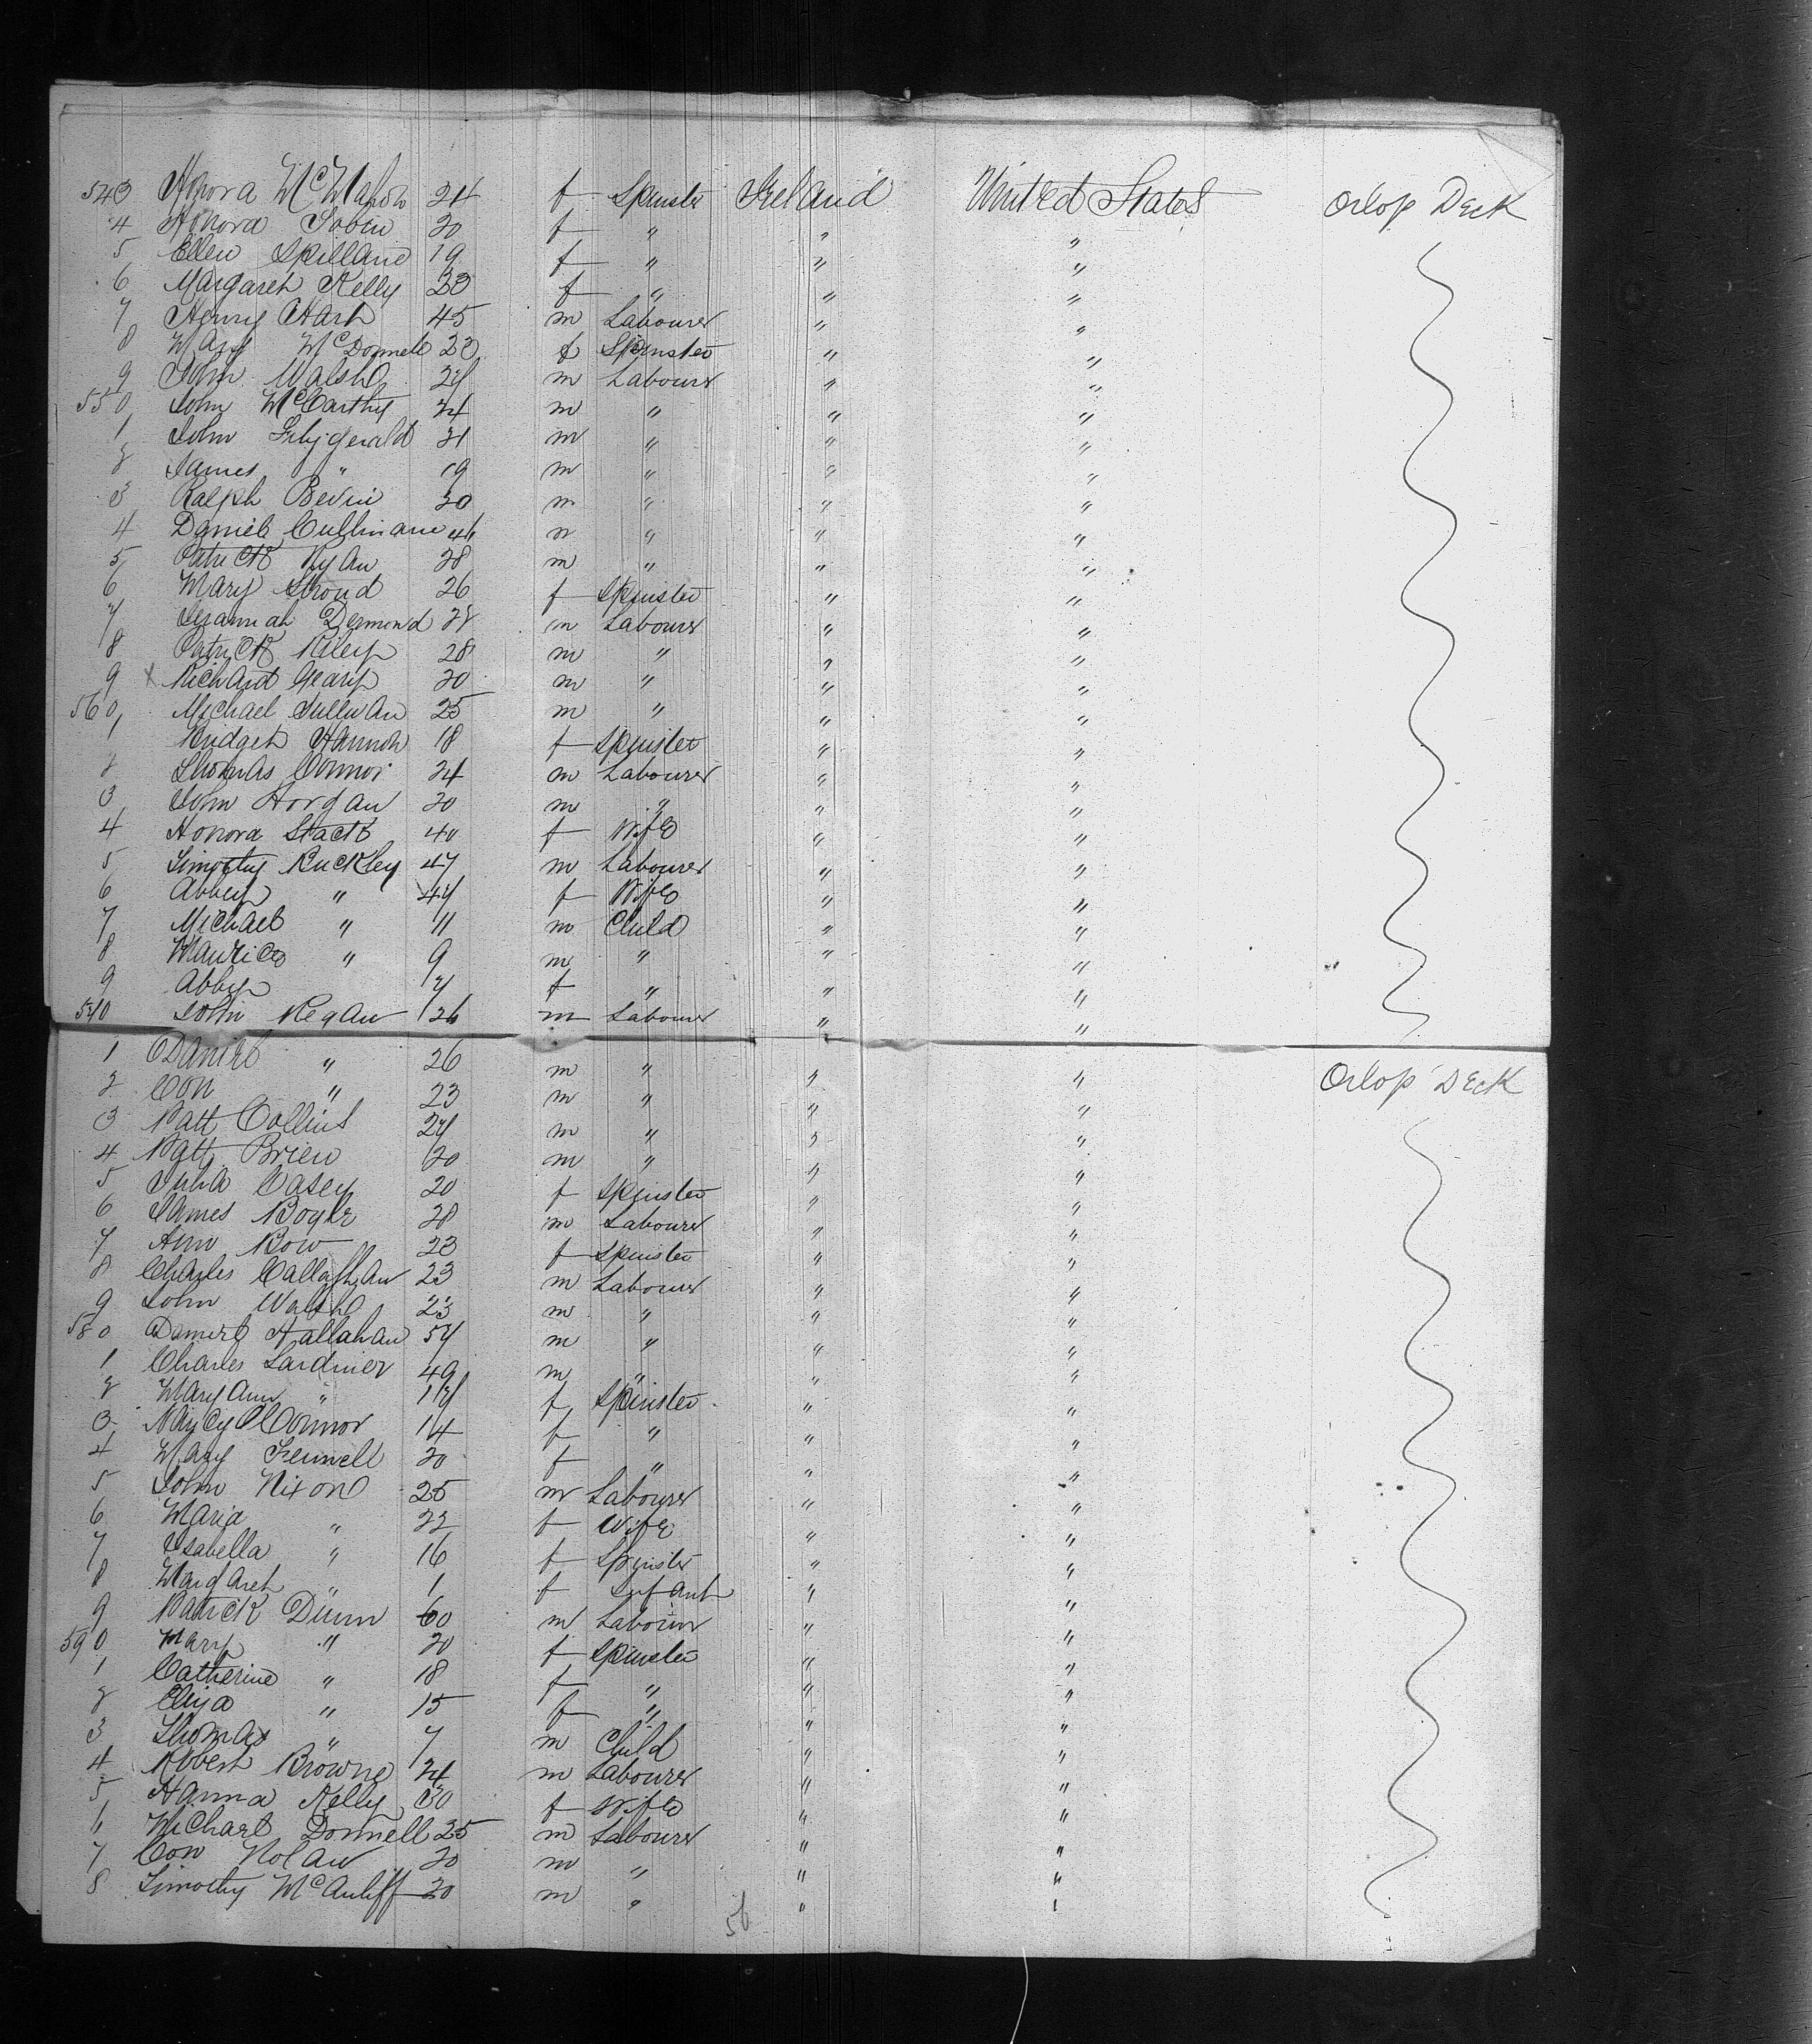 543 Honora McMahon 24 f Spinster Ireland United States Orlop Deck
4 Honora Tobin 20 f " " "
5 Ellen Spillane 19 f " " "
6 Margaret Kelly 23 f " " "
7 Henry Hart 45 m Labourer " "
8 Mary McDonnell 23 f Spinster " "
9 John Walsh 27 m Labourer " "
550 John McCarthy 24 m " " "
1 John Fitzgerald 21 m " " "
2 James " 19 m " " "
3 Ralph Bevin 20 m " " "
4 Daniel Cullinane 46 m " " "
5 Patrick Ryan 28 m " " "
6 Mary Stroud 26 f Spinster " "
7 Jeramiah Desmond 28 m Labourer " "
8 Patrick Riley 28 m " " "
9 x Richard Geary 20 m " " "
560 Michael Sullivan 25 m " " "
1 Bridget Hannon 18 f Spinster " "
2 Thomas Connor 24 m Labourer " "
3 John Horgan 20 m " " "
4 Honora Stack 40 f Wife " "
5 Timothy Buckley 47 m Labourer " "
6 Abbey " 47 f Wife " "
7 Michael " 11 m Child " "
8 Maurice " 9 m " " "
9 Abbey 7 f " " "
570 John Regan 26 m Labourer " "
1 Daniel " 26 m " " " Orlop Deck
2 Con " 23 m " " "
3 Patt Collins 27 m " " "
4 Patt Brien 20 m " " "
5 Julia Casey 20 f Spinster " "
6 James Boyle 28 m Labourer " "
7 Ann Bow 23 f Spinster " "
8 Charles Callaghan 23 m Labourer " "
9 John Walsh 23 m " " "
580 Daniel Hallahan 57 m " " "
1 Charles Lardiner 49 m " " "
2 Mary Ann " 17 f Spinster " "
3 Nancy O'Connor 14 f " " "
4 Mary Fennell 20 f " " "
5 John Nixon 25 m Labourer " "
6 Maria " 22 f Wife " "
7 Isabella " 16 f Spinster " "
8 Margaret " 1 f Infant " "
9 Patrick Dunn 60 m Labourer " "
590 Mary " 20 f Spinster " "
1 Catherine " 18 f " " "
2 Eliza " 15 f " " "
3 Thomas " 7 m Child " "
4 Robert Browne 24 m Labourer " "
5 Hanna Kelly 30 f Wife " "
6 Michael Donnell 25 m Labourer " "
7 Con Nolan 20 m " " "
8 Timothy McAuliff 20 m " " "
56